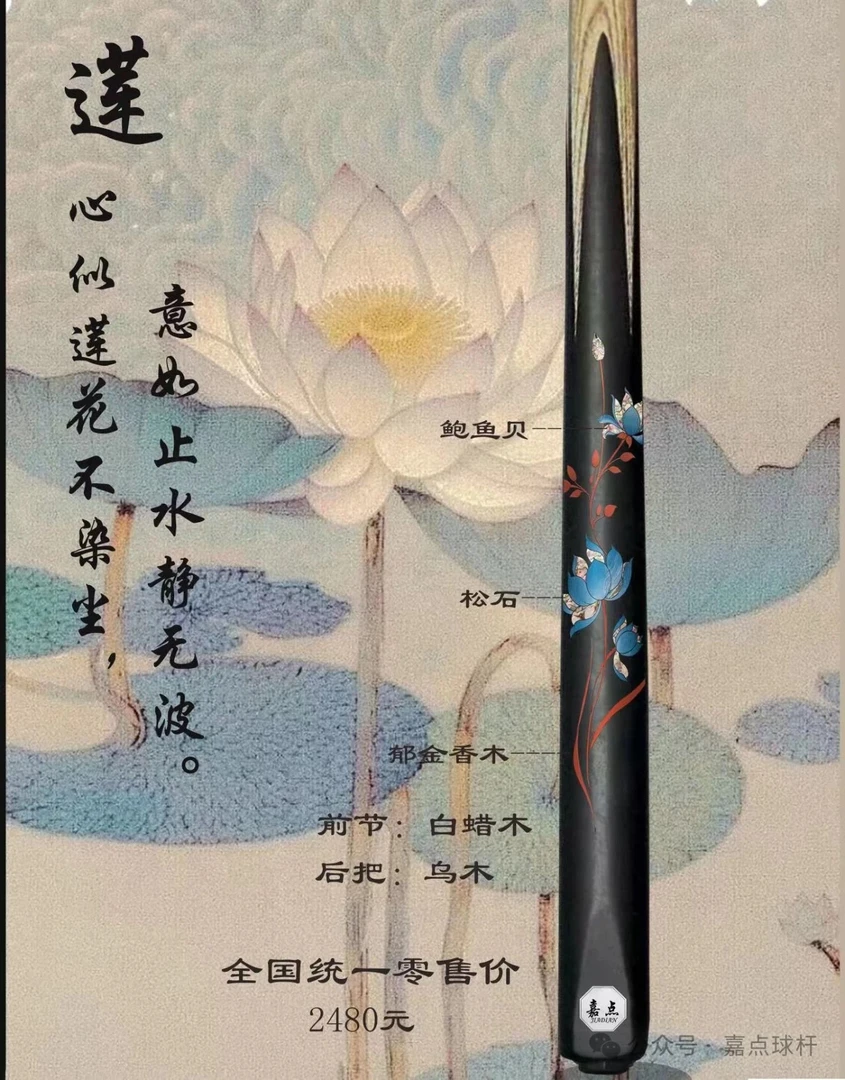 莲
心似莲花不染尘，
意如止水静无波。
鲍鱼贝
松石
郁金香木
前节：白蜡木
后把：乌木
全国统一零售价
2480元
嘉点
JIADIAN
公众号·嘉点球杆